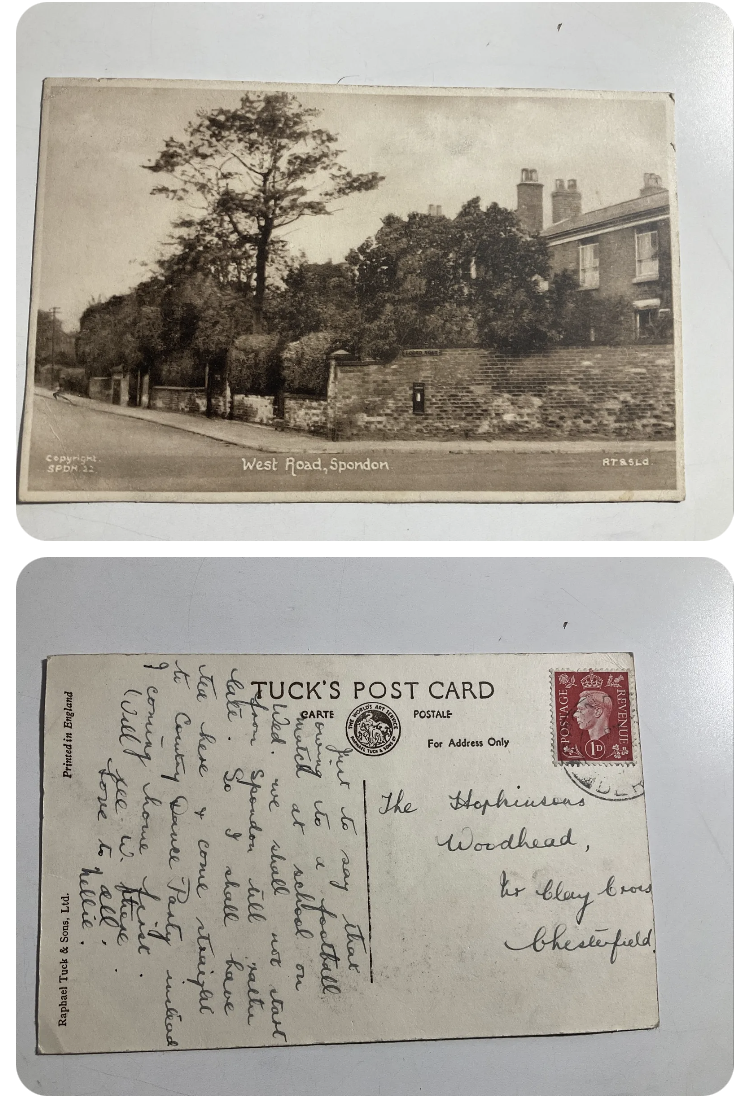 Copyright.
SPDN 22
West Road, Spondon
RT&SLd.
TUCK'S POST CARD
CARTE POSTALE
THE WORLD'S ART SERVICE
RAPHAEL TUCK & SONS LTD
For Address Only
POSTAGE REVENUE
1D
Printed in England
Raphael Tuck & Sons, Ltd.
Just to say that
owing to a football
match at school on
Wed. we shall not start
from Spondon till rather
late. So I shall have
tea here & come straight
to Country Dance Party instead
of coming home first.
Will see
Love to all.
Nellie.
The Hopkinsons
Woodhead,
Nr Clay Cross
Chesterfield.